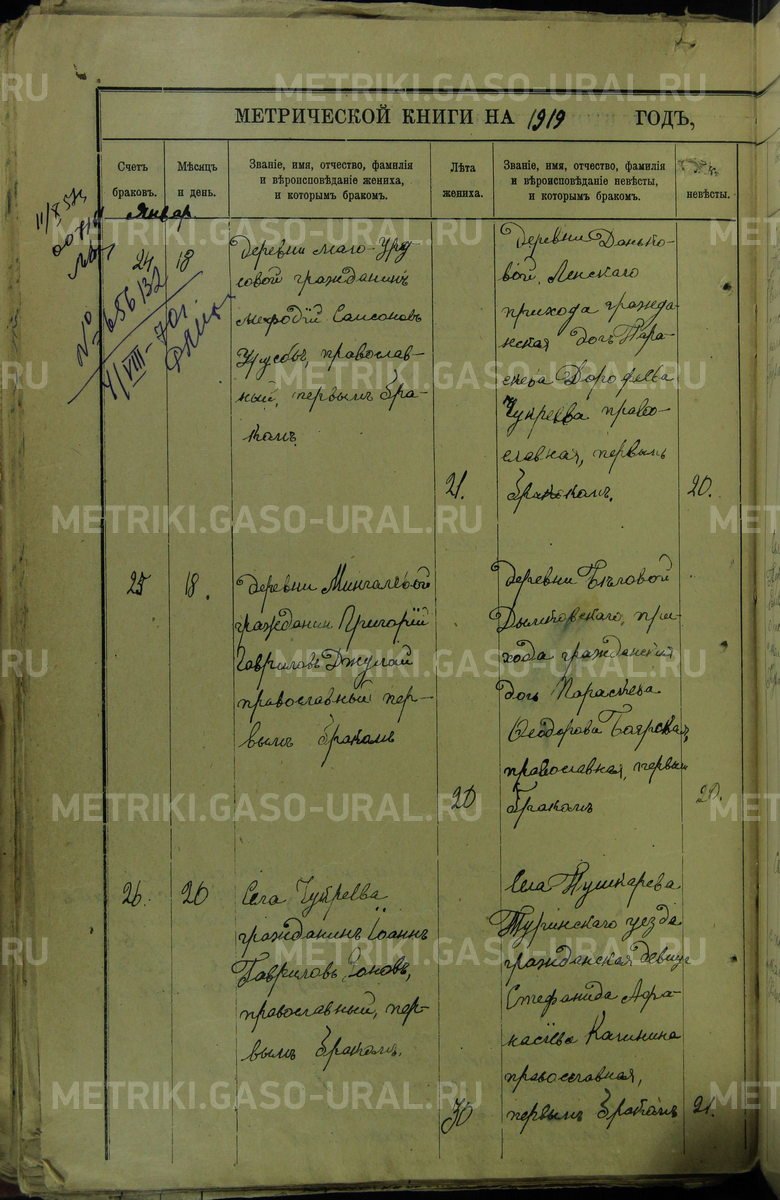 МЕТРИЧЕСКОЙ КНИГИ НА 1919 ГОДЪ,
Счетъ браковъ.
Мѣсяцъ и день.
Званіе, имя, отчество, фамилія
и вѣроисповѣданіе жениха,
и которымъ бракомъ.
Лѣта жениха.
Званіе, имя, отчество, фамилія
и вѣроисповѣданіе невѣсты,
и которымъ бракомъ.
невѣсты.
Январ.
№ 656132
4/VIII-70г.
24
18
деревни Мало-Уру
совой гражданинъ
Меѳодій Самсоновъ
Урусовъ, православ-
ный, первымъ бра-
комъ.
21.
деревни Данько-
вой, Ленскаго
прихода гражда-
нская дочь Пара-
скева Дорофеева
Чукреева право-
славная, первымъ
бракомъ.
20.
25
18.
деревни Мингалевой
гражданин Григорій
Гавриловъ Джулай
православный пер-
вымъ бракомъ
20
деревни Бѣловой
при-
хода гражданская
дочь Параскева
Ѳеодорова Боярская,
православная, первым
бракомъ
20.
26.
20
Села Чукреева
гражданинъ Іоаннъ
Гавриловъ
православный, пер-
вымъ бракомъ.
30
Села Пушкарева
Туринскаго уезда
гражданская девица
Стефанида Афа-
насіева Калинина
православная,
первымъ бракомъ
21.
METRIKI.GASO-URAL.RU